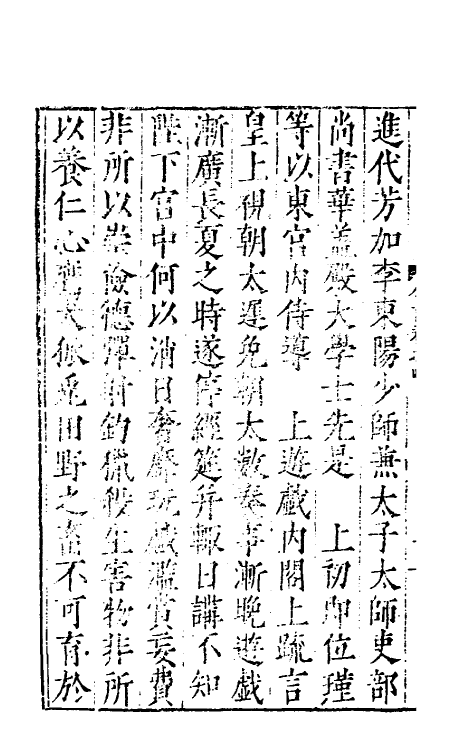 進代芳加李東陽少師兼太子太師吏部
尚書華蓋殿大學士先是　上初即位瑾
等以東宮內侍導　上遊戲內閣上疏言
皇上視朝太遲免朝太數奏事漸晚遊戲
漸廣長夏之時遂停經筵并輟日講不知
陛下宮中何以消日奢靡玩戲濫賞妄費
非所以崇儉德彈射釣獵殺生害物非所
以養仁心鷹犬狐兎田野之畜不可育於